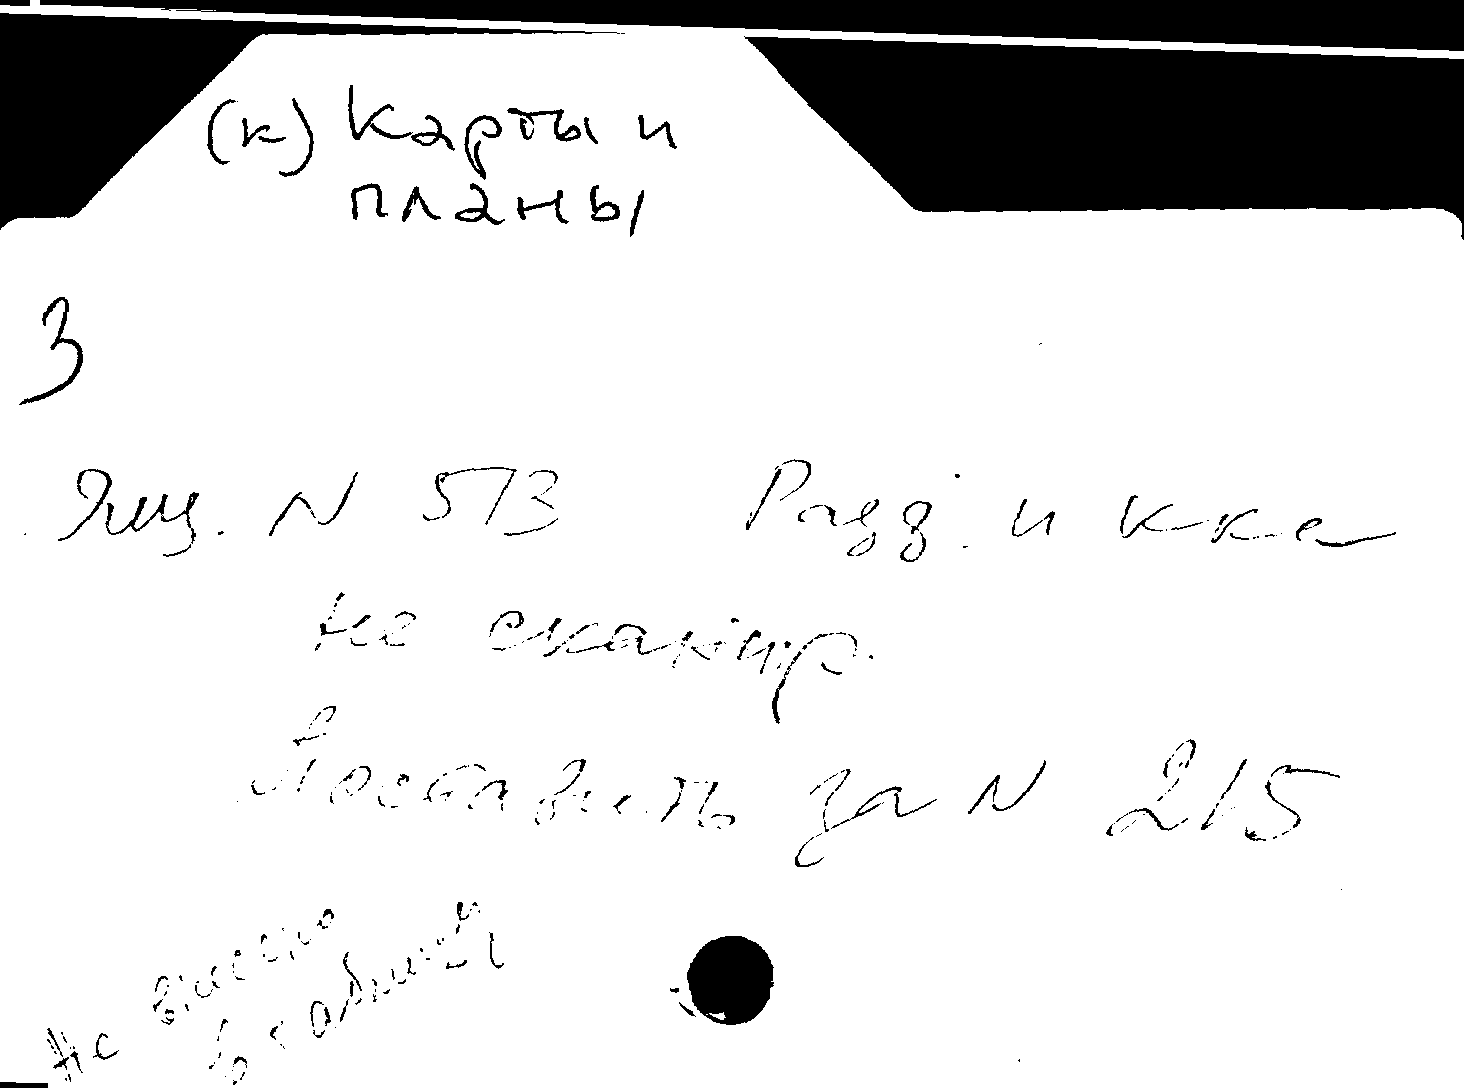 (к) Карты и
планы
3
Ящ. N 513 Разд. и кка
не сканир.
Поставить за N 215
Не внесено
в таблицы